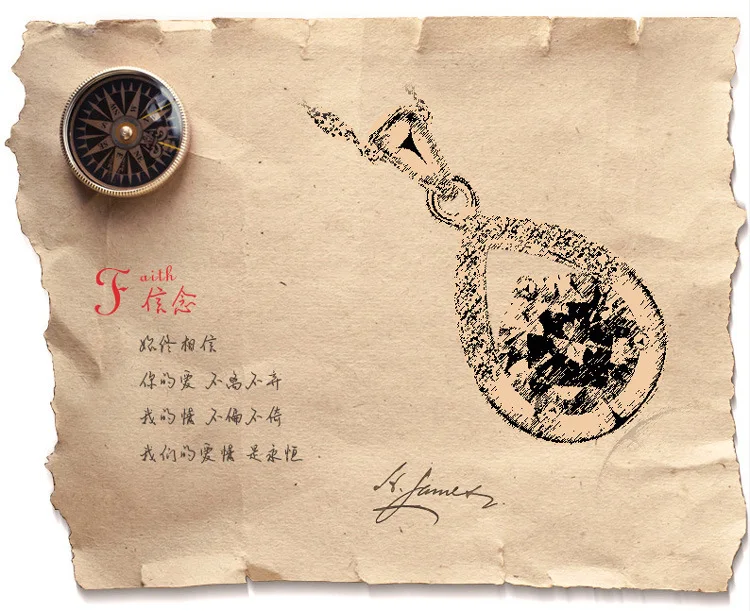 Faith
信念
始终相信
你的爱 不离不弃
我的情 不偏不倚
我们的爱情 是永恒
H. James